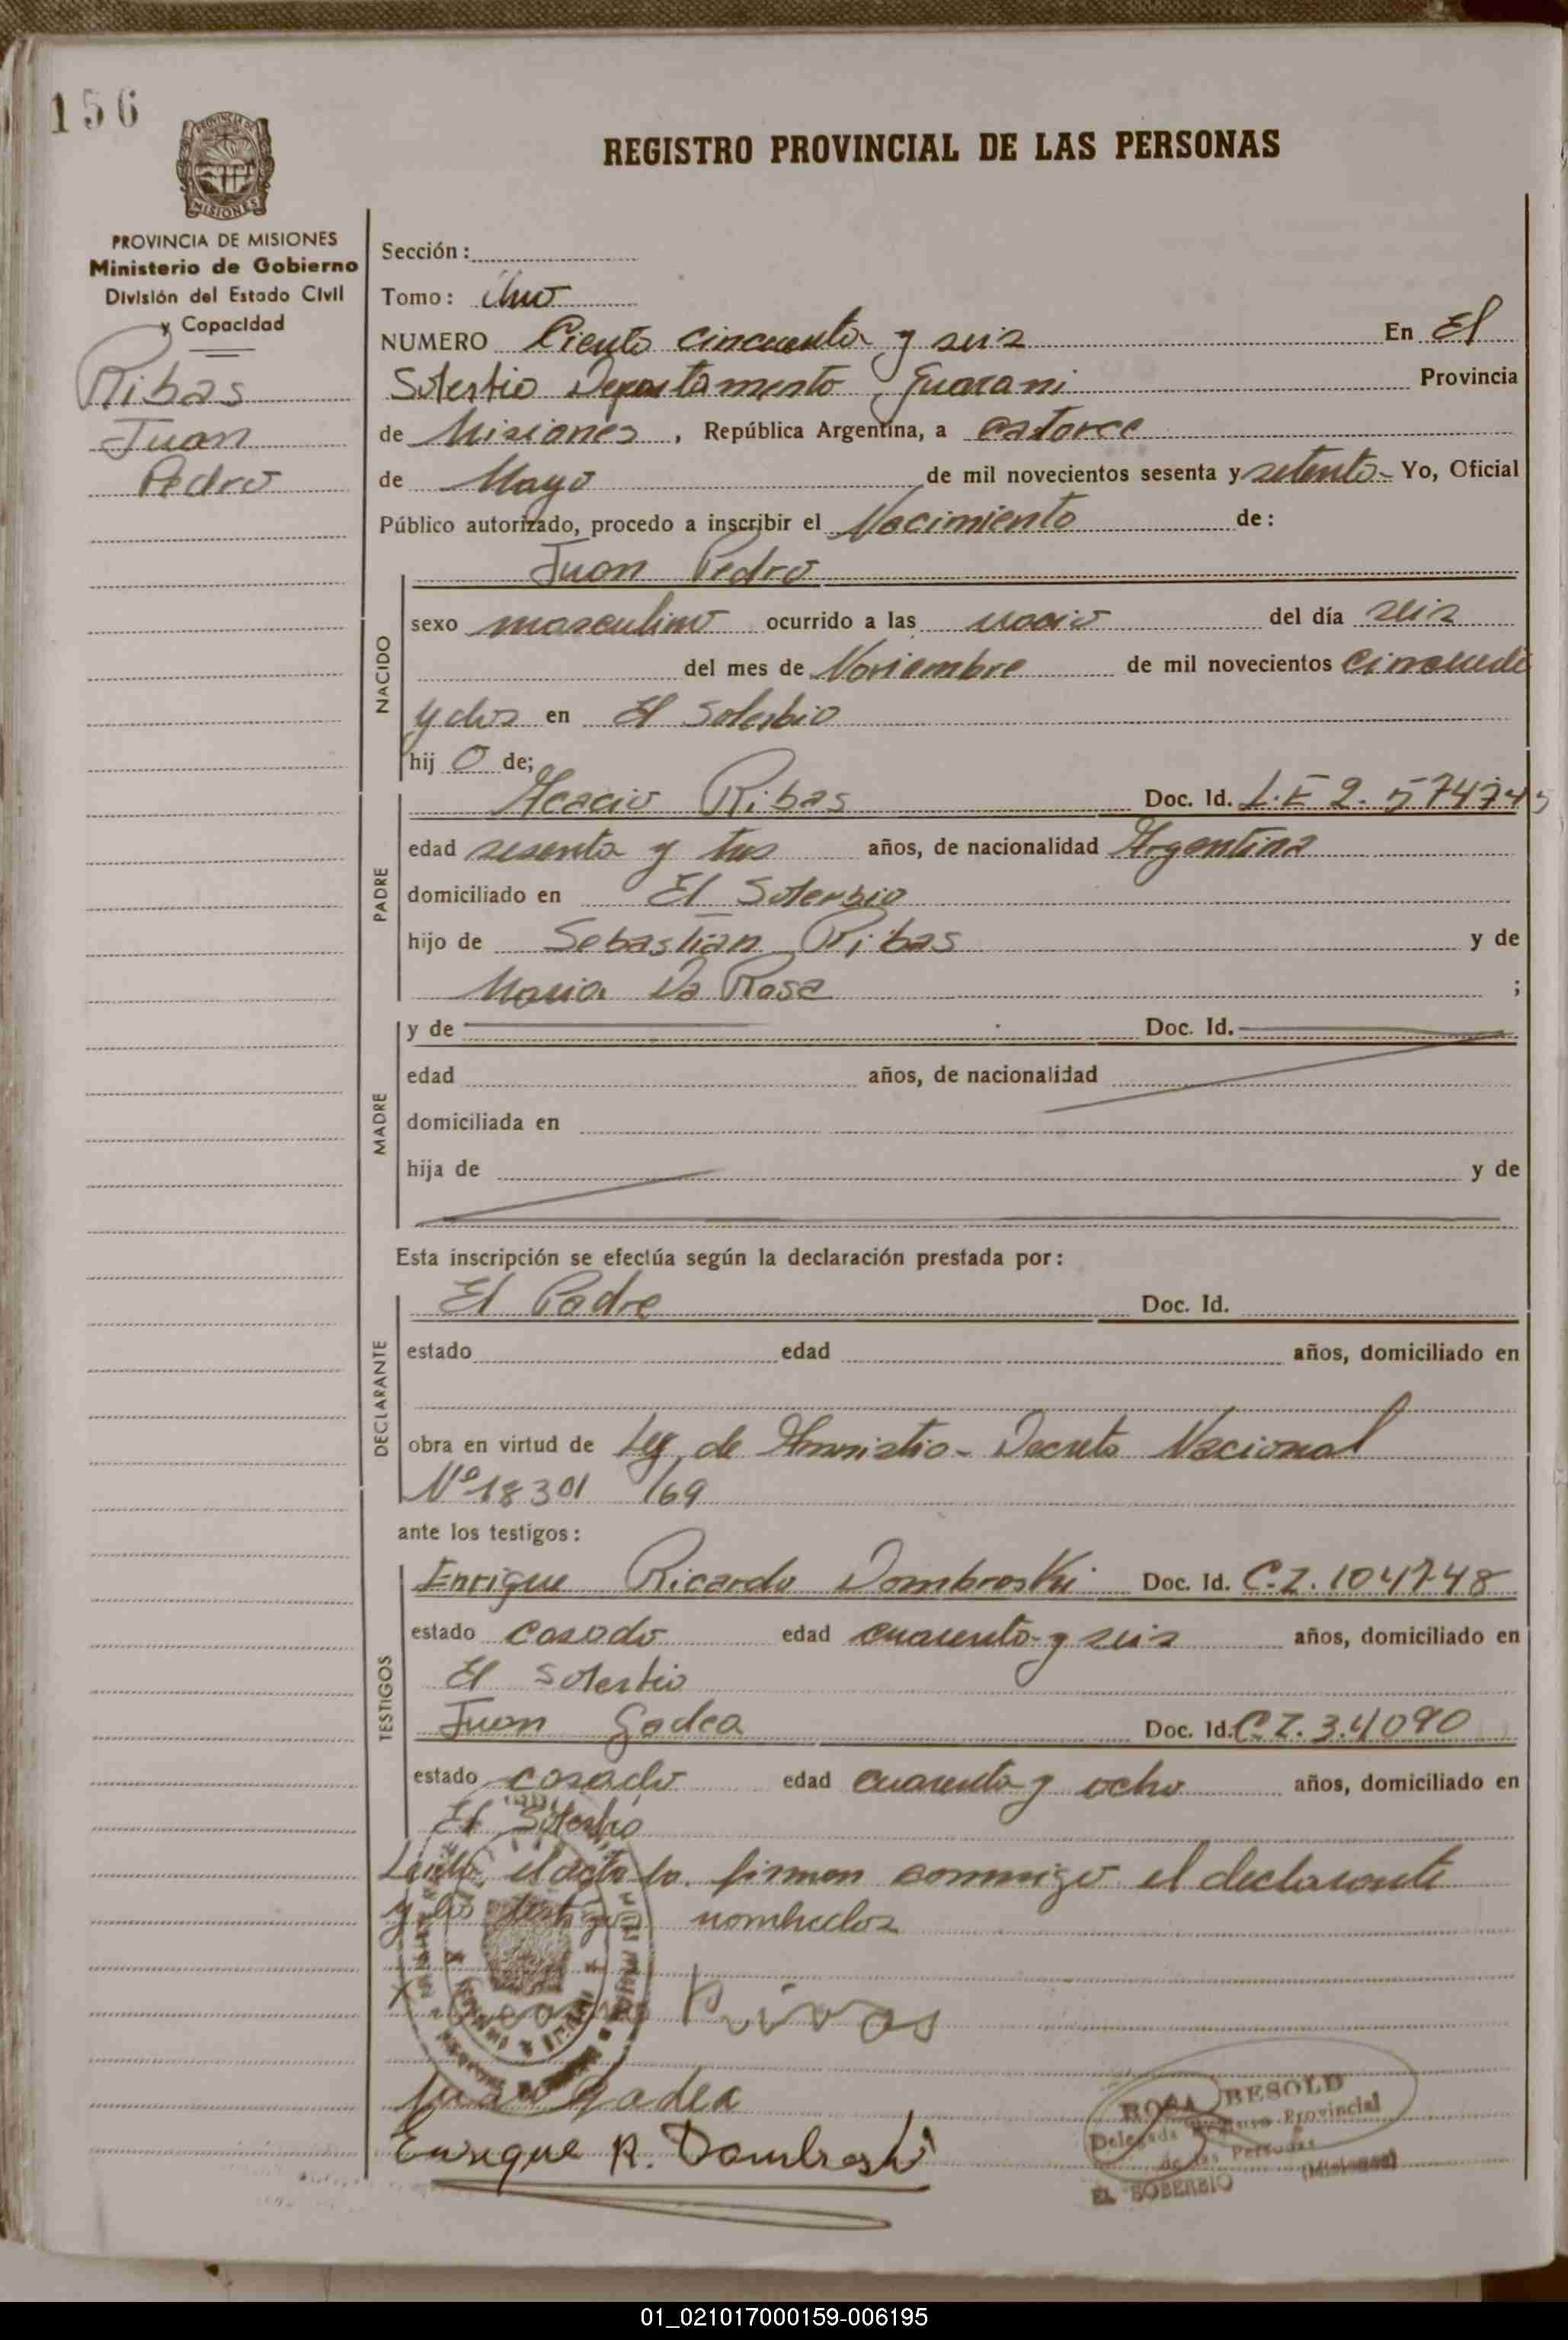 156
PROVINCIA DE MISIONES
MISIONES
PROVINCIA DE MISIONES
Ministerio de Gobierno
División del Estado Civil
y Capacidad
Ribas
Juan
Pedro
REGISTRO PROVINCIAL DE LAS PERSONAS
Sección:
Tomo: Uno
NUMERO Ciento cincuenta y seis En El
Soberbio Departamento Guarani Provincia
de Misiones, República Argentina, a catorce
de Mayo de mil novecientos sesenta y setenta- Yo, Oficial
Público autorizado, procedo a inscribir el Nacimiento de:
Juan Pedro
NACIDO
sexo masculino ocurrido a las del día seis
del mes de Noviembre de mil novecientos
y dos en El Soberbio
hij o de;
PADRE
Acacio Ribas Doc. Id. L.E 2.574745
edad sesenta y tres años, de nacionalidad Argentina
domiciliado en El Soberbio
hijo de Sebastian Ribas y de
Maria Da Rosa ;
MADRE
y de Doc. Id.
edad años, de nacionalidad
domiciliada en
hija de y de
Esta inscripción se efectúa según la declaración prestada por:
DECLARANTE
El Padre Doc. Id.
estado edad años, domiciliado en
obra en virtud de Ley de Amnistia- Decreto Nacional
Nº 18301/69
ante los testigos:
TESTIGOS
Enrique Ricardo Dombroski Doc. Id. C.I. 104748
estado casado edad cuarenta y seis años, domiciliado en
El Soberbio
Juan Godea Doc. Id. C.I. 3.4090
estado casado edad cuarenta y ocho años, domiciliado en
El Soberbio
el acta la firman conmigo el declarante
y los testigos nombrados
Rivas
Juan Godea
Enrique R. Dombroski
ROSA BESOLD
Delegada Registro Provincial
de las Personas
EL SOBERBIO (Misiones)
01_021017000159-006195